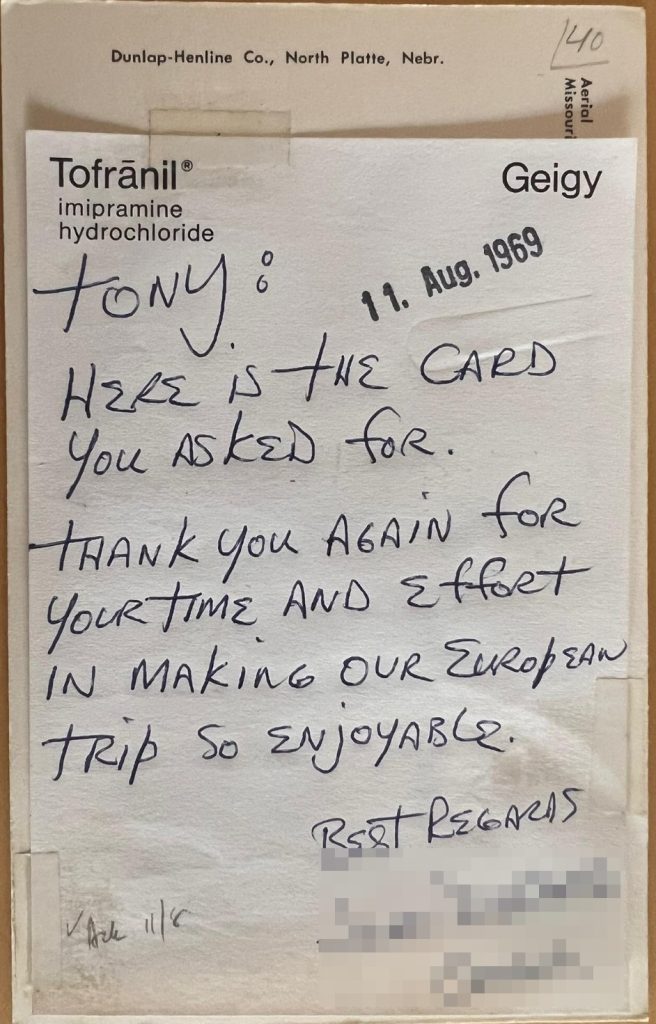 140
Dunlap-Henline Co., North Platte, Nebr.
Aerial
Missouri
Tofrānil® Geigy
imipramine
hydrochloride
11. Aug. 1969
TONY:
HERE IS THE CARD
YOU ASKED FOR.
THANK YOU AGAIN FOR
YOUR TIME AND EFFORT
IN MAKING OUR EUROPEAN
TRIP SO ENJOYABLE.
BEST REGARDS
✓ Ack 11/8